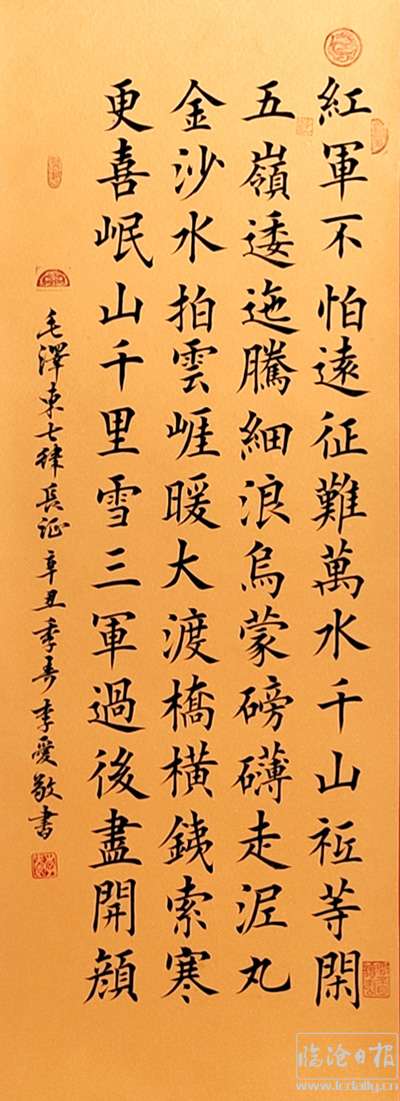 紅軍不怕遠征難萬水千山祗等閑
五嶺逶迤騰細浪烏蒙磅礴走泥丸
金沙水拍雲崕暖大渡橋橫銕索寒
更喜岷山千里雪三軍過後盡開顔
毛澤東七律長征 辛丑季春李愛敬書
临沧日报
www.lcdaily.cn